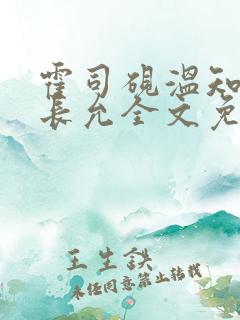 霍司砚温知
长允全文免
王生鉄
未经同意禁止转载